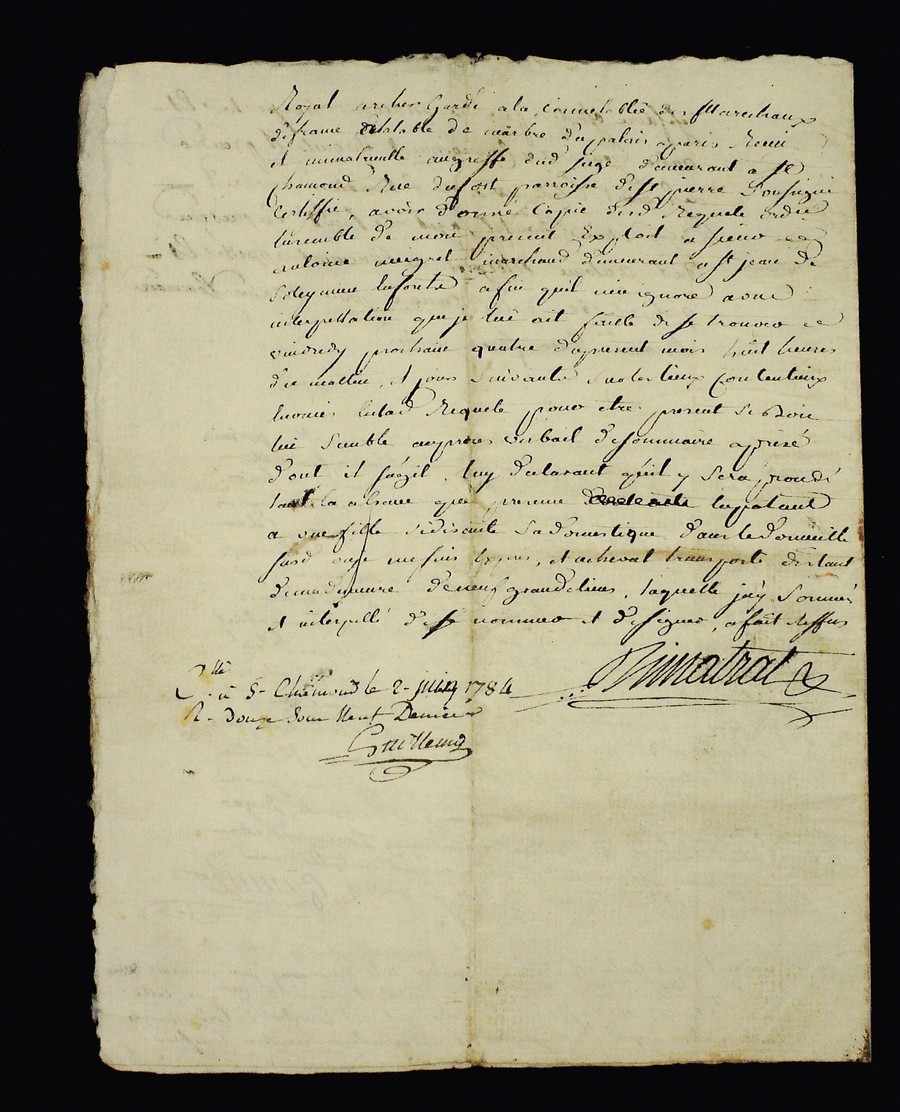 Royal archer Garde a la Connetablié des Marechaux
de france Etatable de marbre du palais aparis Receu
et immatriculle augreffe dud siege demeurant a St
chamond Rue du parroisse de st pierre Soussigné
Certiffie, avoir donné Coppie de la Requete ordce
Ensemble de mon present Exploit a sieur
antoine marchand demeurant a st jean de
Soleymieu Enforets afin quil nen ignore avec
interpellation que je luÿ ait faitte de se trouver
vindredy prochain quatre dupresent mois huit heures
du mattin, et jours suivants sur les lieux Contentieux
Enoncés Enlad Requete pour etre present Sy bon
luÿ Semble auproces verbail de sommaire apprise
dont il sagit, luÿ declarant quil y sera procedé
tant En absence que presence Enparlant
a une fille se disante Sa domestique dans le domicille
susd ou je me suis Expres, et acheval transporté distant
de ma demeure de neuf grande lieus, laquelle jaÿ Sommé
et interpellé de se nommer et de signer, a fait reffus
Bimatrat
C.lle à St Chamond le 2 juin 1784
R. douze sous Neuf Deniers
Guillemin